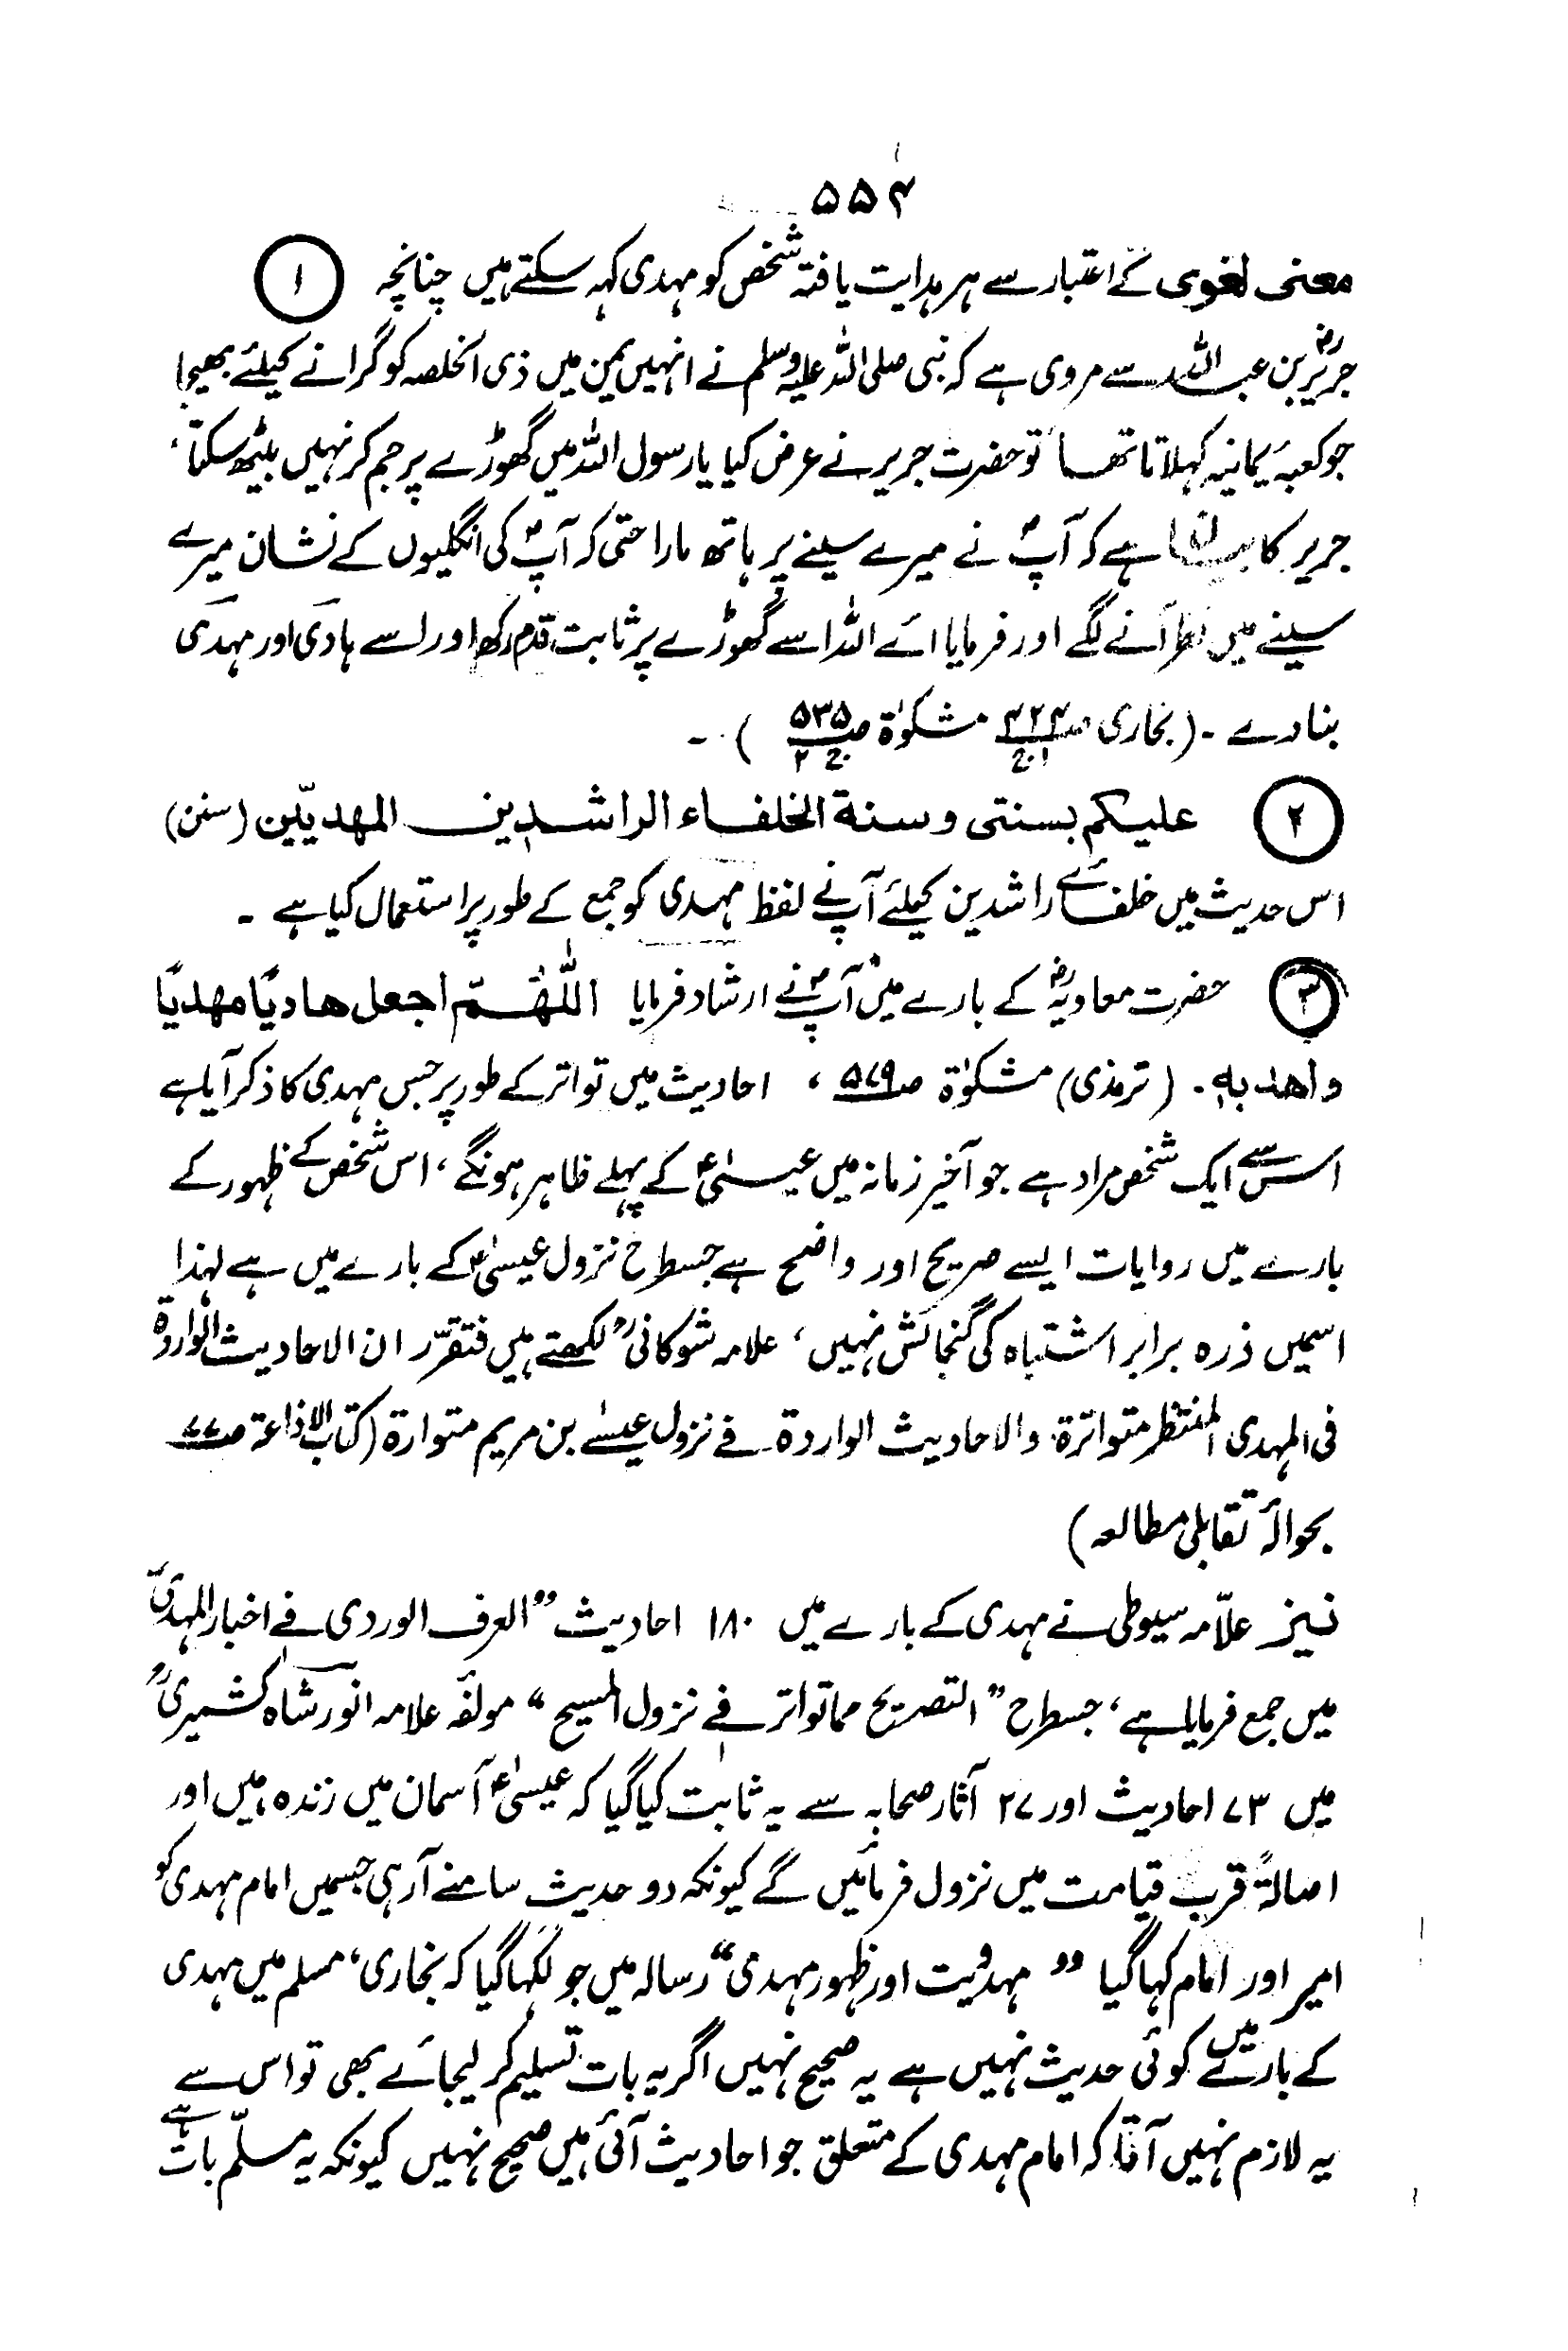 ۵۵۴
معنی لغوی کے اعتبار سے ہر ہدایت یافتہ شخص کو مہدی کہہ سکتے ہیں چنانچہ ①
جریرؓ بن عبداللہ سے مروی ہے کہ نبی صلی اللہ علیہ وسلم نے انہیں یمن میں ذی الخلصہ کو گرانے کیلئے بھیجا
جو کعبۂ یمانیہ کہلاتا تھا تو حضرت جریر نے عرض کیا یا رسول اللہ میں گھوڑے پر جم کر نہیں بیٹھ سکتا،
جریر کا بیان ہے کہ آپؐ نے میرے سینے پر ہاتھ مارا حتی کہ آپؐ کی انگلیوں کے نشان میرے
سینے میں نظر آنے لگے اور فرمایا اے اللہ اسے گھوڑے پر ثابت قدم رکھ اور اسے ہادی اور مہدی
بنا دے ۔ (بخاری صـ۴۲۴ ج۱ مشکوٰۃ صـ۵۳۵ ج۲ ) ۔
② علیکم بسنتی وسنة الخلفاء الراشدین المهدیّین (سنن)
اس حدیث میں خلفائے راشدین کیلئے آپؐ نے لفظ مہدی کو جمع کے طور پر استعمال کیا ہے ۔
③ حضرت معاویہؓ کے بارے میں آپؐ نے ارشاد فرمایا اللّٰهُمّ اجعل هادیًا مهدیًا
واهد به ۔ (ترمذی) مشکوٰۃ صـ۵۷۹ ، احادیث میں تواتر کے طور پر جس مہدی کا ذکر آیا ہے
اس سے ایک شخص مراد ہے جو آخیر زمانہ میں عیسیٰؑ کے پہلے ظاہر ہونگے ، اس شخص کے ظہور کے
بارے میں روایات ایسے صریح اور واضح ہے جسطرح نزول عیسیٰؑ کے بارے میں ہے لہٰذا
اسمیں ذرہ برابر اشتباہ کی گنجائش نہیں ، علامہ شوکانیؒ لکھتے ہیں فتقرّر ان الاحادیث الواردة
فی المہدی المنتظر متواترة والاحادیث الواردة فی نزول عیسیٰ بن مریم متوارة (کتاب الاذاعة صـ۷۷
بحوالہ تقابلی مطالعہ )
نیز علّامہ سیوطی نے مہدی کے بارے میں ۱۸۰ احادیث ”العرف الوردی فی اخبار المہدی“
میں جمع فرمایا ہے ، جسطرح ”التصریح مما تواتر فی نزول المسیح“ مولفہ علامہ انور شاہ کشمیریؒ
میں ۷۳ احادیث اور ۲۷ آثار صحابہ سے یہ ثابت کیا گیا کہ عیسیٰؑ آسمان میں زندہ ہیں اور
اصالۃً قرب قیامت میں نزول فرمائیں گے کیونکہ دو حدیث سامنے آرہی جسمیں امام مہدی کو
امیر اور امام کہا گیا ”مہدویت اور ظہور مہدی“ رسالہ میں جو لکھا گیا کہ بخاری ، مسلم میں مہدی
کے بارے میں کوئی حدیث نہیں ہے یہ صحیح نہیں اگر یہ بات تسلیم کرلیجائے بھی تو اس سے
یہ لازم نہیں آتا کہ امام مہدی کے متعلق جو احادیث آئی ہیں صحیح نہیں کیونکہ یہ مسلّم بات ہے